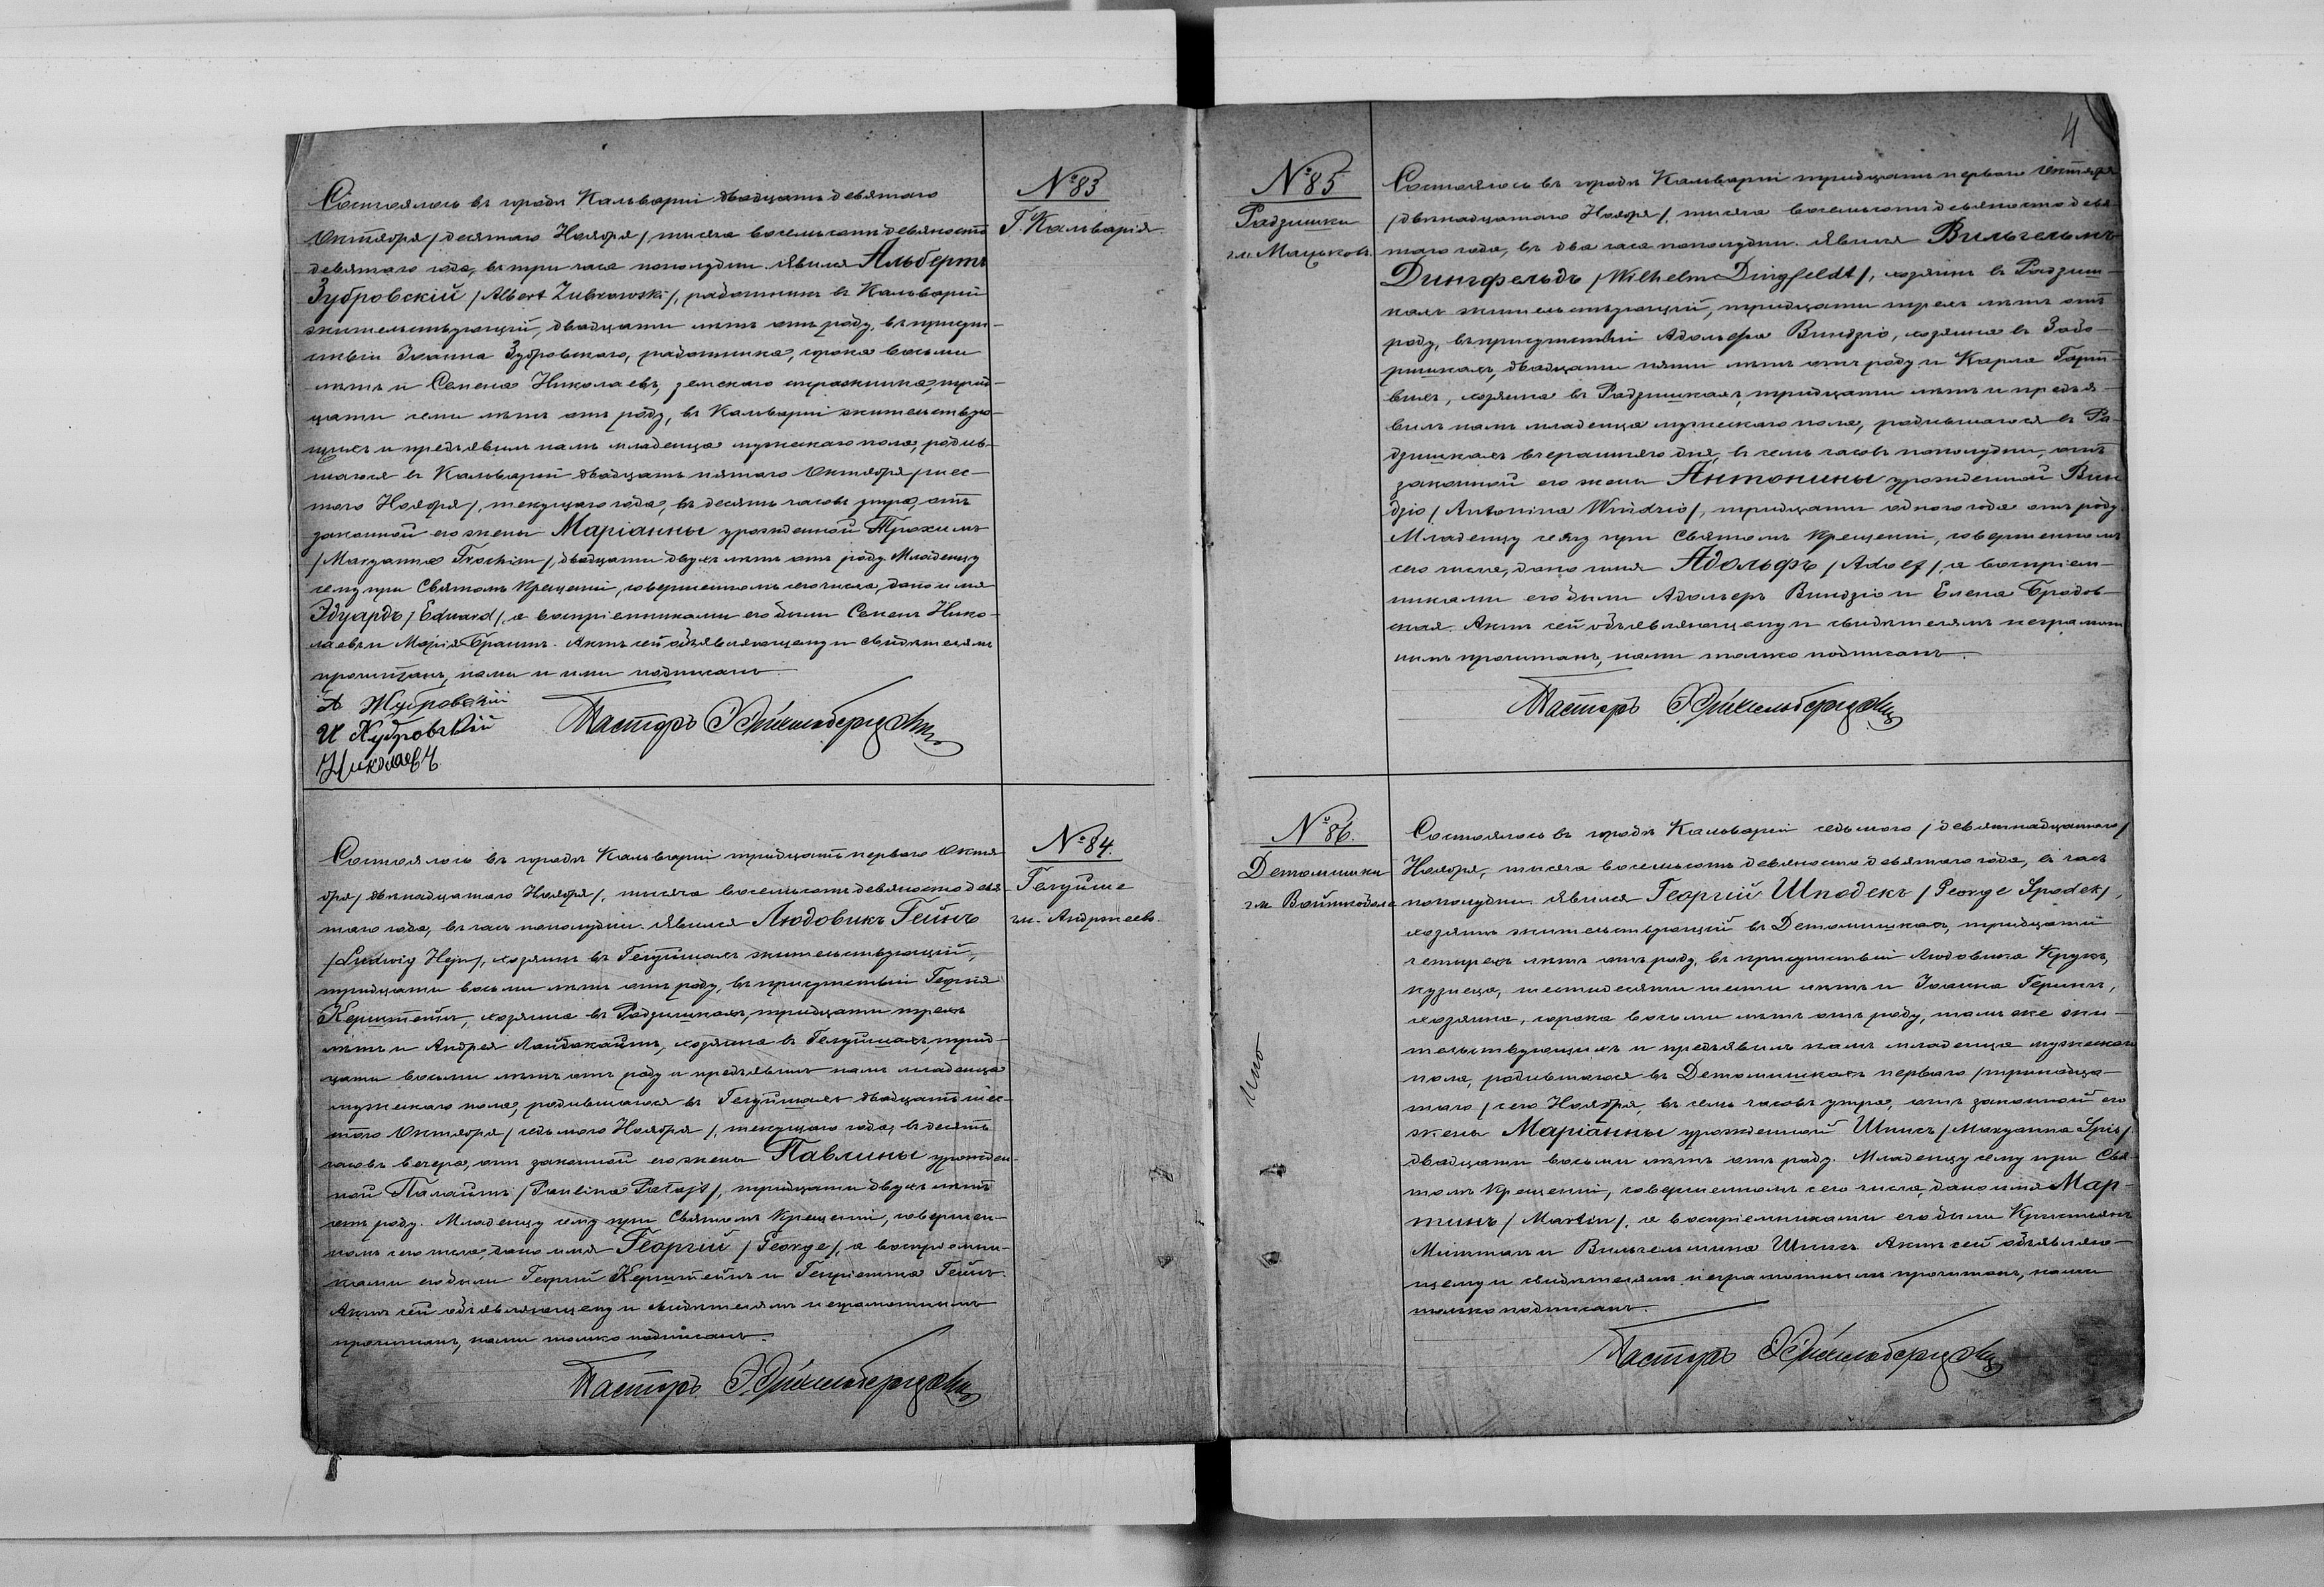 № 83
Г. Кальварія.
Состоялось въ городѣ Кальваріи двадцать девятаго
Октября /десятаго Ноября/ тысяча восемьсотъ девяносто
девятаго года, въ три часа пополудни. Явился Альбертъ
Зубровскій /Albert Zubrowski/, работникъ въ Кальваріи
жительствующій, двадцати лѣтъ отъ роду, въ присут-
ствіи Іоанна Зубровскаго, работника, сорока восьми
лѣтъ и Семена Николаевъ, земскаго стражника, трид-
цати семи лѣтъ отъ роду, въ Кальваріи жительствую-
щихъ и предъявилъ намъ младенца мужескаго пола, родив-
шагося въ Кальваріи двадцать пятаго Октября /шес-
таго Ноября/, текущаго года, въ десять часовъ утра, отъ
законной его жены Маріанны урожденной Трохимъ
/Maryanna Trochim/, двадцати двухъ лѣтъ отъ роду. Младенцу
сему при Святомъ Крещеніи, совершенномъ сего числа, дано имя
Эдуардъ /Eduard/, а воспріемниками его были Семенъ Нико-
лаевъ и Марія Браунъ. Актъ сей объявляющему и свидѣтелямъ
прочитанъ, нами и ими подписанъ.
А Жубровскій
И Жубровскій
Николаевъ
Пасторъ
№ 84.
Гелуйше
гм. Андржеево.
Состоялось въ городѣ Кальваріи тридцать перваго Октя-
бря /двѣнадцатаго Ноября/, тысяча восемьсотъ девяносто девя-
таго года, въ часъ пополудни. Явился Людовикъ Гейнъ
/Ludwig Hejn/, хозяинъ въ Гелуйшахъ жительствующій,
тридцати восьми лѣтъ отъ роду, въ присутствіи Георгія
Керштейнъ, хозяина въ Радзишкахъ, тридцати трехъ
лѣтъ и Андрея Лайдокайтъ, хозяина въ Гелуйшахъ, трид-
цати восьми лѣтъ отъ роду и предъявилъ намъ младенца
мужескаго пола, родившагося въ Гелуйшахъ двадцать шес-
таго Октября /седьмого Ноября/, текущаго года, въ десять
часовъ вечера, отъ законной его жены Павлины урожден-
ной Патайтъ /Paulina Patajt/, тридцати двухъ лѣтъ
отъ роду. Младенцу сему при Святомъ Крещеніи, совершен-
номъ сего числа, дано имя Георгій /George/, а воспріемни-
ками его были Георгій Керштейнъ и Генріетта Гейнъ.
Актъ сей объявляющему и свидѣтелямъ неграмотнымъ
прочитанъ, нами только подписанъ.
Пасторъ
4
№ 85
Радзишки
гм. Мацьково.
Состоялось въ городѣ Кальваріи тридцать перваго Октября
/двѣнадцатаго Ноября/, тысяча восемьсотъ девяносто девя-
таго года, въ два часа пополудни. Явился Вильгельмъ
Дингфельдъ /Wilhelm Dingfeldt/, хозяинъ въ Радзиш-
кахъ жительствующій, тридцати трехъ лѣтъ отъ
роду, въ присутствіи Адольфа Виндзіо, хозяина въ Забо-
ришкахъ, двадцати пяти лѣтъ отъ роду и Карла Гарт-
вихъ, хозяина въ Радзишкахъ, тридцати лѣтъ и предъя-
вилъ намъ младенца мужескаго пола, родившагося въ Ра-
дзишкахъ вчерашняго дня, въ семь часовъ пополудни, отъ
законной его жены Антонины урожденной Вин
дзіо /Antonina Windzio/, тридцати одного года отъ роду.
Младенцу сему при Святомъ Крещеніи, совершенномъ
сего числа, дано имя Адольфъ /Adolf/, а воспріем-
никами его были Адольфъ Виндзіо и Елена Бродов-
ская. Актъ сей объявляющему и свидѣтелямъ неграмот
нымъ прочитанъ, нами только подписанъ.
Пасторъ
№ 86.
Детомишки
гм. Войткобола
Состоялось въ городѣ Кальваріи седьмого /девятнадцатаго/
Ноября, тысяча восемьсотъ девяносто девятаго года, въ часъ
пополудни. Явился Георгій Шподекъ /George Spodek/,
хозяинъ жительствующій въ Детомишкахъ, тридцати
четырехъ лѣтъ отъ роду, въ присутствіи Людовика Кругъ,
кузнеца, шестидесяти шести лѣтъ и Іоанна Герингъ,
хозяина, сорока восьми лѣтъ отъ роду, тамъ же жи-
тельствующихъ и предъявилъ намъ младенца мужескаго
пола, родившагося въ Детомишкахъ перваго /тринадца-
таго/ сего Ноября, въ семь часовъ утра, отъ законной его
жены Маріанны урожденной Шписъ /Maryanna Spis/
двадцати восьми лѣтъ отъ роду. Младенцу сему при Свя-
томъ Крещеніи, совершенномъ сего числа, дано имя Мар-
тинъ /Martin/, а воспріемниками его были Кристіянъ
Миттагъ и Вильгельмина Шписъ. Актъ сей объявляю-
щему и свидѣтелямъ неграмотнымъ прочитанъ, нами
только подписанъ.
Пасторъ